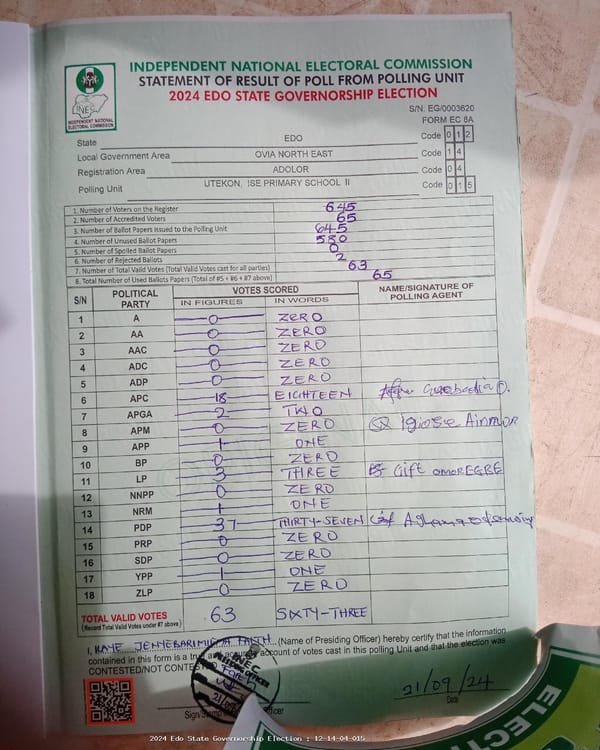 INDEPENDENT NATIONAL ELECTORAL COMMISSION
STATEMENT OF RESULT OF POLL FROM POLLING UNIT
2024 EDO STATE GOVERNORSHIP ELECTION
INEC
INDEPENDENT NATIONAL ELECTORAL COMMISSION
S/N: EG/0003620
FORM EC 8A
State EDO Code 0 1 2
Local Government Area OVIA NORTH EAST Code 1 4
Registration Area ADOLOR Code 0 4
Polling Unit UTEKON, ISE PRIMARY SCHOOL II Code 0 1 5
1. Number of Voters on the Register 645
2. Number of Accredited Voters 65
3. Number of Ballot Papers Issued to the Polling Unit 645
4. Number of Unused Ballot Papers 580
5. Number of Spoiled Ballot Papers 0
6. Number of Rejected Ballots 2
7. Number of Total Valid Votes (Total Valid Votes cast for all parties) 63
8. Total Number of Used Ballots Papers (Total of #5 + #6 + #7 above) 65
S/N POLITICAL PARTY VOTES SCORED NAME/SIGNATURE OF POLLING AGENT
IN FIGURES IN WORDS
1 A 0 ZERO
2 AA 0 ZERO
3 AAC 0 ZERO
4 ADC 0 ZERO
5 ADP 0 ZERO
6 APC 18 EIGHTEEN
7 APGA 2 TWO
8 APM 0 ZERO Igiose
9 APP 1 ONE
10 BP 0 ZERO
11 LP 3 THREE Gift OMOREGBE
12 NNPP 0 ZERO
13 NRM 1 ONE
14 PDP 37 THIRTY-SEVEN
15 PRP 0 ZERO
16 SDP 0 ZERO
17 YPP 1 ONE
18 ZLP 0 ZERO
TOTAL VALID VOTES 63 SIXTY-THREE
(Record Total Valid Votes under #7 above)
I, FAITH (Name of Presiding Officer) hereby certify that the information
contained in this form is a true account of votes cast in this polling Unit and that the election was
CONTESTED/NOT CONTESTED
INEC
21/09/24
Date
ELEC
2024 Edo State Governorship Election : 12-14-04-015